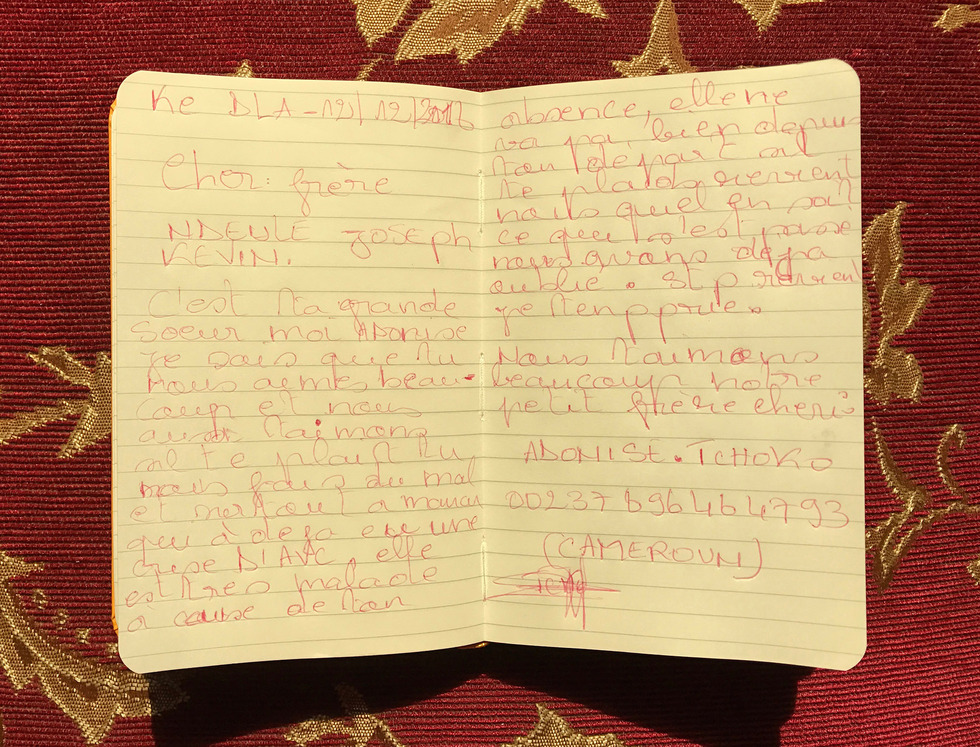 Ke DLA-12/12/2016
Cher: frère
NDEULE JOSEPH
KEVIN.
C'est ta grande
soeur moi ADONISE
je sais que tu
nous aimes beau-
coup et nous
aussi t'aimons
sil te plait tu
nous fais du mal
et surtout a maman
qui à deja eue une
crise D'AVC, elle
est tres malade
à cause de ton
absence, elle ne
va pas bien depuis
ton depart sil
te plait reviens
nous quel en soit
ce que s'est passé
nous avons deja
oublie. St previent
je t'en pprie.
Nous t'aimons
beaucoup notre
petit frère cheri
ADONISE. TCHOKO
00237 696464793
(CAMEROUN)